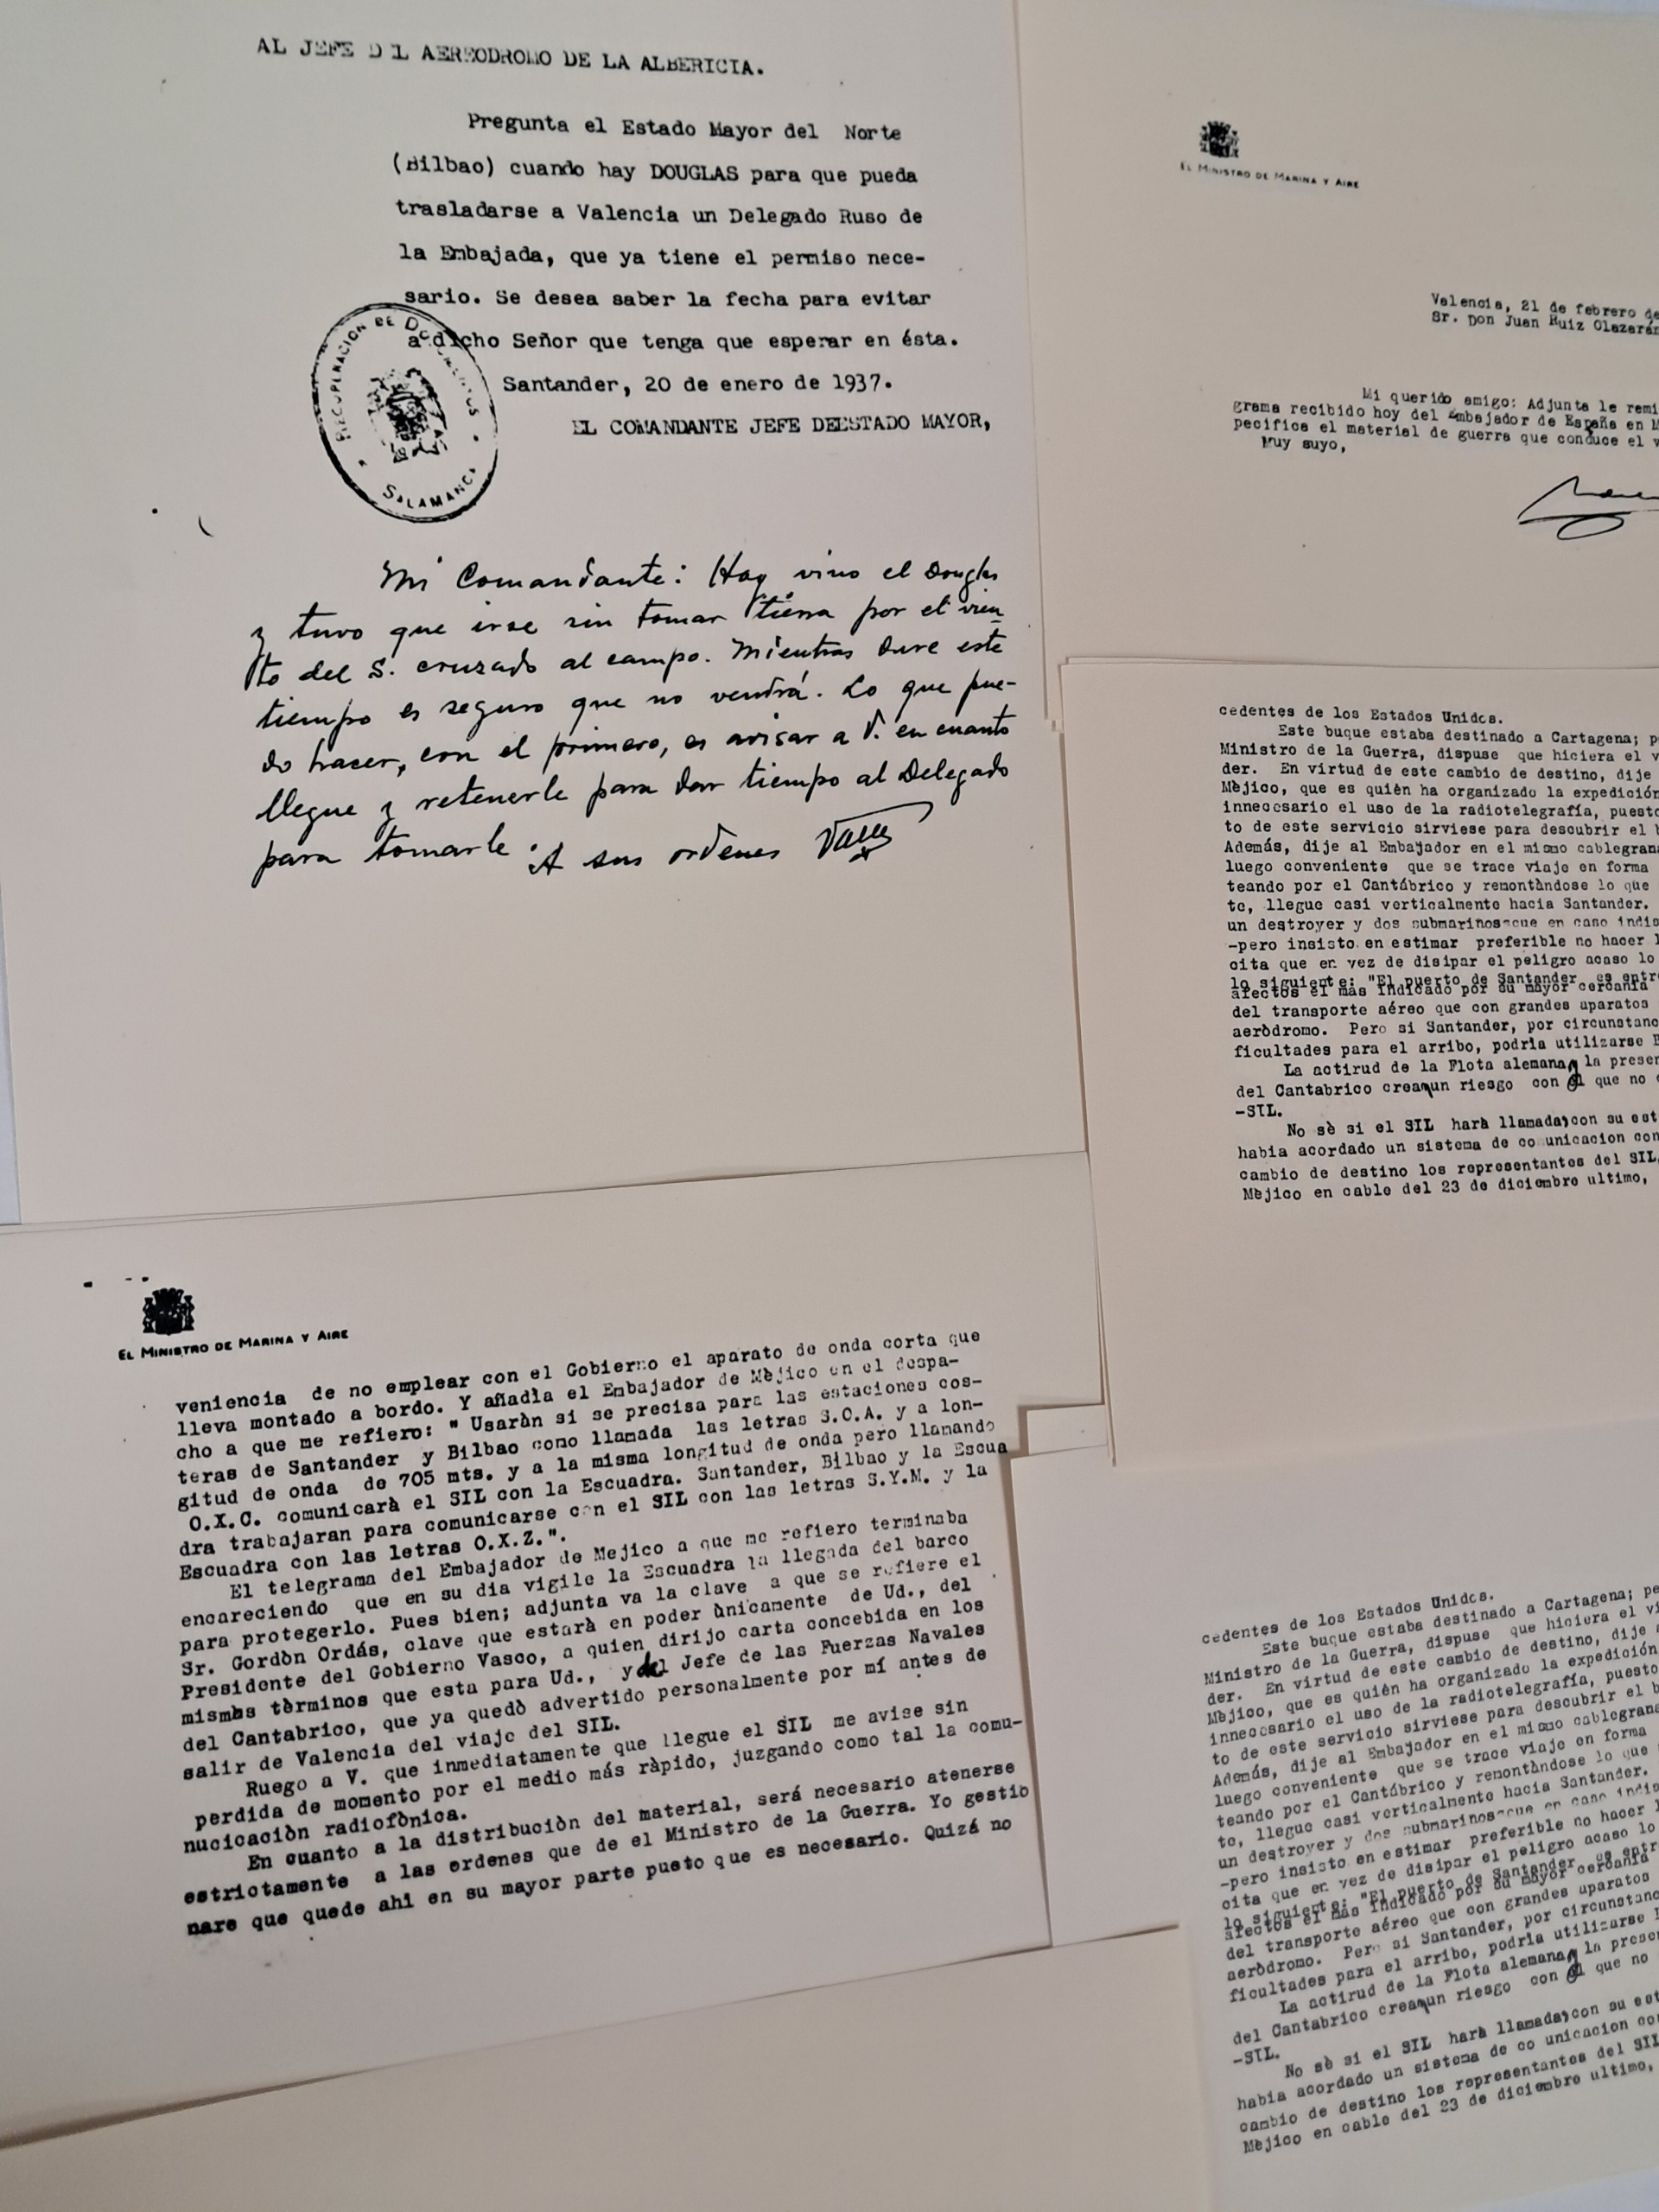 AL JEFE D L AEREODROMO DE LA ALBERICIA.
Pregunta el Estado Mayor del Norte
(Bilbao) cuando hay DOUGLAS para que pueda
trasladarse a Valencia un Delegado Ruso de
la Embajada, que ya tiene el permiso nece-
sario. Se desea saber la fecha para evitar
a dicho Señor que tenga que esperar en ésta.
Santander, 20 de enero de 1937.
EL COMANDANTE JEFE DEESTADO MAYOR,
RECUPERACION DE DOCUMENTOS
SALAMANCA
Mi Comandante: Hoy vino el Douglas
y tuvo que irse sin tomar tierra por el vien
to del S. cruzado al campo. Mientras dure este
tiempo es seguro que no vendrá. Lo que pue-
do hacer, con el primero, es avisar a V. en cuanto
llegue y retenerle para dar tiempo al Delegado
para tomarle. A sus ordenes
EL MINISTRO DE MARINA Y AIRE
Valencia, 21 de febrero de
Sr. Don Juan Ruiz Olazarán
Mi querido amigo: Adjunta le remi
grama recibido hoy del Embajador de España en M
pecifica el material de guerra que conduce el v
Muy suyo,
cedentes de los Estados Unidos.
Este buque estaba destinado a Cartagena; p
Ministro de la Guerra, dispuse que hiciera el v
der. En virtud de este cambio de destino, dije
Mèjico, que es quièn ha organizado la expedición
innecesario el uso de la radiotelegrafía, puesto
to de este servicio sirviese para descubrir el b
Además, dije al Embajador en el mismo cablegrama
luego conveniente que se trace viaje en forma
teando por el Cantábrico y remontàndose lo que
te, llegue casi verticalmente hacia Santander.
un destroyer y dos submarinos que en caso indis
-pero insisto en estimar preferible no hacer l
cita que en vez de disipar el peligro acaso lo
lo siguiente: "El puerto de Santander es entre
afectos el más indicado por su mayor cercanía
del transporte aéreo que con grandes aparatos
aeròdromo. Pero si Santander, por circunstanc
ficultades para el arribo, podria utilizarse B
La actirud de la Flota alemana, la presen
del Cantabrico crea un riesgo con el que no
-SIL.
No sè si el SIL harà llamada, con su est
habia acordado un sistema de co unicacion con
cambio de destino los representantes del SIL,
Mèjico en cable del 23 de diciembre ultimo,
EL MINISTRO DE MARINA Y AIRE
veniencia de no emplear con el Gobierno el aparato de onda corta que
lleva montado a bordo. Y añadia el Embajador de Mèjico en el despa-
cho a que me refiero: " Usaràn si se precisa para las estaciones cos-
teras de Santander y Bilbao como llamada las letras S.O.A. y a lon-
gitud de onda de 705 mts. y a la misma longitud de onda pero llamando
O.X.C. comunicarà el SIL con la Escuadra. Santander, Bilbao y la Escua
dra trabajaran para comunicarse con el SIL con las letras S.Y.M. y la
Escuadra con las letras O.X.Z.".
El telegrama del Embajador de Mejico a que me refiero terminaba
encareciendo que en su dia vigile la Escuadra la llegada del barco
para protegerlo. Pues bien; adjunta va la clave a que se refiere el
Sr. Gordòn Ordás, clave que estarà en poder ùnicamente de Ud., del
Presidente del Gobierno Vasco, a quien dirijo carta concebida en los
mismos tèrminos que esta para Ud., y del Jefe de las Fuerzas Navales
del Cantabrico, que ya quedò advertido personalmente por mí antes de
salir de Valencia del viaje del SIL.
Ruego a V. que inmediatamente que llegue el SIL me avise sin
perdida de momento por el medio más ràpido, juzgando como tal la comu-
nucicaciòn radiofònica.
En cuanto a la distribuciòn del material, será necesario atenerse
estrictamente a las ordenes que de el Ministro de la Guerra. Yo gestio
nare que quede ahi en su mayor parte puesto que es necesario. Quizá no
cedentes de los Estados Unidos.
Este buque estaba destinado a Cartagena; pe
Ministro de la Guerra, dispuse que hiciera el vi
der. En virtud de este cambio de destino, dije a
Mèjico, que es quièn ha organizado la expedición
innecesario el uso de la radiotelegrafía, puesto
to de este servicio sirviese para descubrir el b
Además, dije al Embajador en el mismo cablegrama
luego conveniente que se trace viaje en forma
teando por el Cantábrico y remontàndose lo que
te, llegue casi verticalmente hacia Santander.
un destroyer y dos submarinos que en caso indis
-pero insisto en estimar preferible no hacer l
cita que en vez de disipar el peligro acaso lo
lo siguiente: "El puerto de Santander es entr
afectos el más indicado por su mayor cercanía
del transporte aéreo que con grandes aparatos
aeròdromo. Pero si Santander, por circunstanc
ficultades para el arribo, podrìa utilizarse
La actirud de la Flota alemana, la presen
del Cantabrico crea un riesgo con el que no
-SIL.
No sè si el SIL harà llamada, con su est
habia acordado un sistema de co unicacion con
cambio de destino los representantes del SIL
Mèjico en cable del 23 de diciembre ultimo,